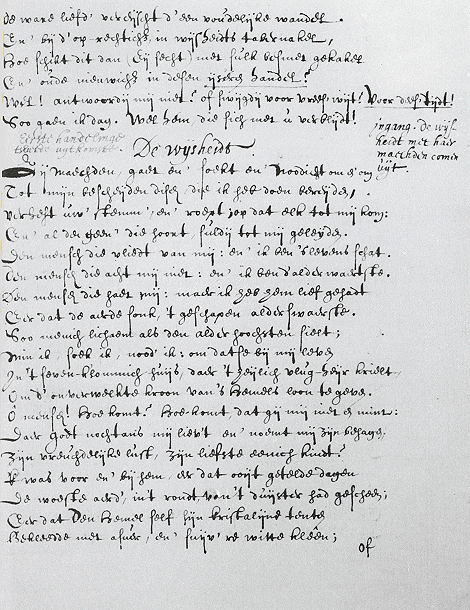 De ware liefd' vereijscht d'een voudelijke wandel.
En' bij d'op rechtichs, in wijsheidts tabernakel,
Hoe schikt dit dan (Eij secht) met sulk besmet gekakel
En' oude nieuwichs in desen handel?
Wel! antwoordij mij niet? of swijgdij voor vreese, wijt! Voor dees tijdt!
Soo gaen ik dag. Wel hem die sich met u verblijd!
Eerste handelinge
uytkomste.
De wijsheidt
ingang. De wijs-
heidt met haer
maechden comen
uijt.
Gij Maechden, gaet en' soekt en' noodicht om end' om
Tot mijn bescheijden disch, die ik heb doen bereijden,
verheft uw' stemm', en' roept, op dat elk tot mij kom:
En' al den geen' die hoort, suldij tot mij geleyde.
Den mensch die vliedt van mij: en' ik ben 's levens schat.
Den mensch die acht mij niet: en' ik ben d'alder waertste.
Den mensch die haet mij: maer ik heb hem lief gehadt
Eer dat de aerde sonk, 't geschapen alder swaerste.
Soo menich lichaem als den alder hoochsten sielt;
Min ik, soek ik, nood' ik: om datse bij mij leve
In 't seven-kolommich huijs, daer 't heijlich vlug-heir krielt,
Om d'onverwelkte kroon van 's Hemels loon te geve.
O mensch! Hoe komt? Hoe komt dat gij mij niet en mint:
Daer Godt nochtans mij lieft en' noemt mij zijn behage,
Zijn vreuchdelijke lust, zijn liefste eenich kindt?
Ik was voor en' bij hem, eer dat ooijt getelde dagen
De woeste aerd', in't rondt, van't duijster had gescheen;
Eer dat den Hemel self sijn kristalijne tente
Bekleedde met asuer, en' suijv're witte kleên;
of